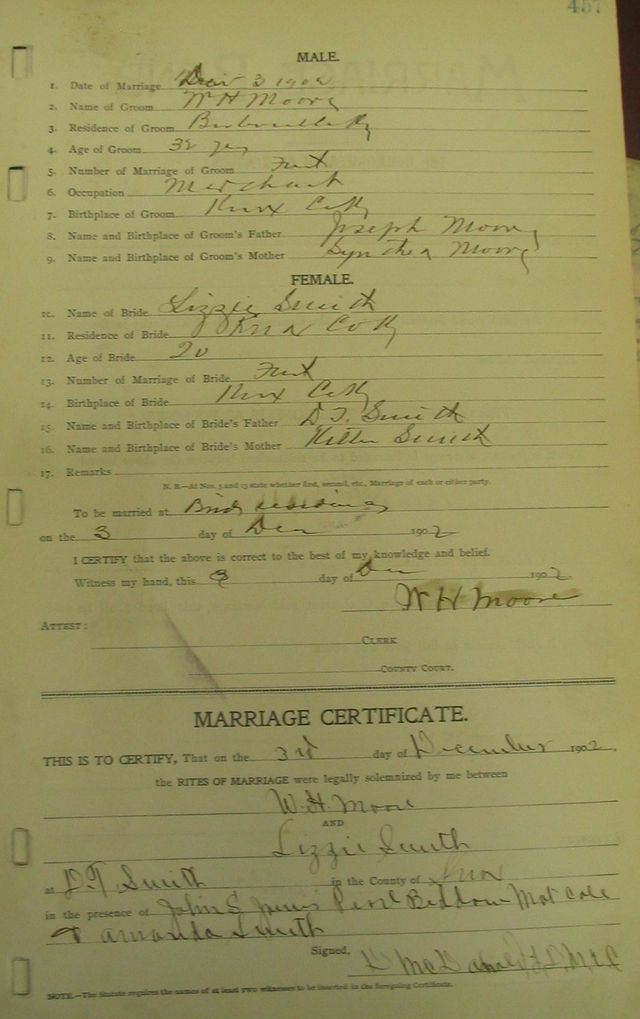 457
MALE.
1. Date of Marriage Dec 3 1902
2. Name of Groom W H Moore
3. Residence of Groom Barbourville Ky
4. Age of Groom 32 yrs
5. Number of Marriage of Groom First
6. Occupation Merchant
7. Birthplace of Groom Knox Co Ky
8. Name and Birthplace of Groom's Father Joseph Moore
9. Name and Birthplace of Groom's Mother Moore
FEMALE.
10. Name of Bride Lizzie Smith
11. Residence of Bride Knox Co Ky
12. Age of Bride 20
13. Number of Marriage of Bride First
14. Birthplace of Bride Knox Co Ky
15. Name and Birthplace of Bride's Father D T. Smith
16. Name and Birthplace of Bride's Mother Smith
17. Remarks
N. B.—At Nos. 5 and 13 state whether first, second, etc., Marriage of each or either party.
To be married at Brides
on the 3 day of Dec 1902
I CERTIFY that the above is correct to the best of my knowledge and belief.
Witness my hand, this 3 day of Dec 1902
W H Moore
ATTEST:
CLERK
COUNTY COURT.
MARRIAGE CERTIFICATE.
THIS IS TO CERTIFY, That on the 3rd day of December 1902,
the RITES OF MARRIAGE were legally solemnized by me between
W. H. Moore
AND
Lizzie Smith
at D. T. Smith in the County of Knox
in the presence of John S Jones Beddow Mat Cole
& Amanda Smith
Signed,
NOTE.—The Statute requires the names of at least TWO witnesses to be inserted in the foregoing Certificate.